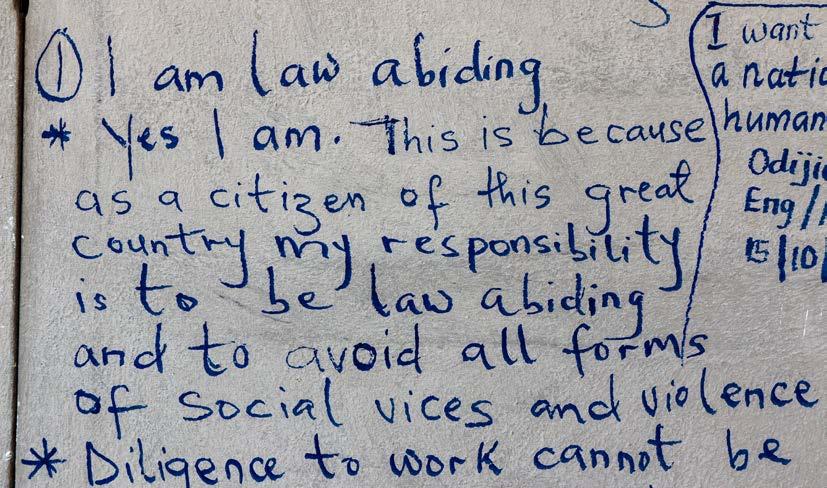 ① I am law abiding
* Yes I am. This is because
as a citizen of this great
country my responsibility
is to be law abiding
and to avoid all forms
of social vices and violence
* Diligence to work cannot be
I want
a
human
Eng/